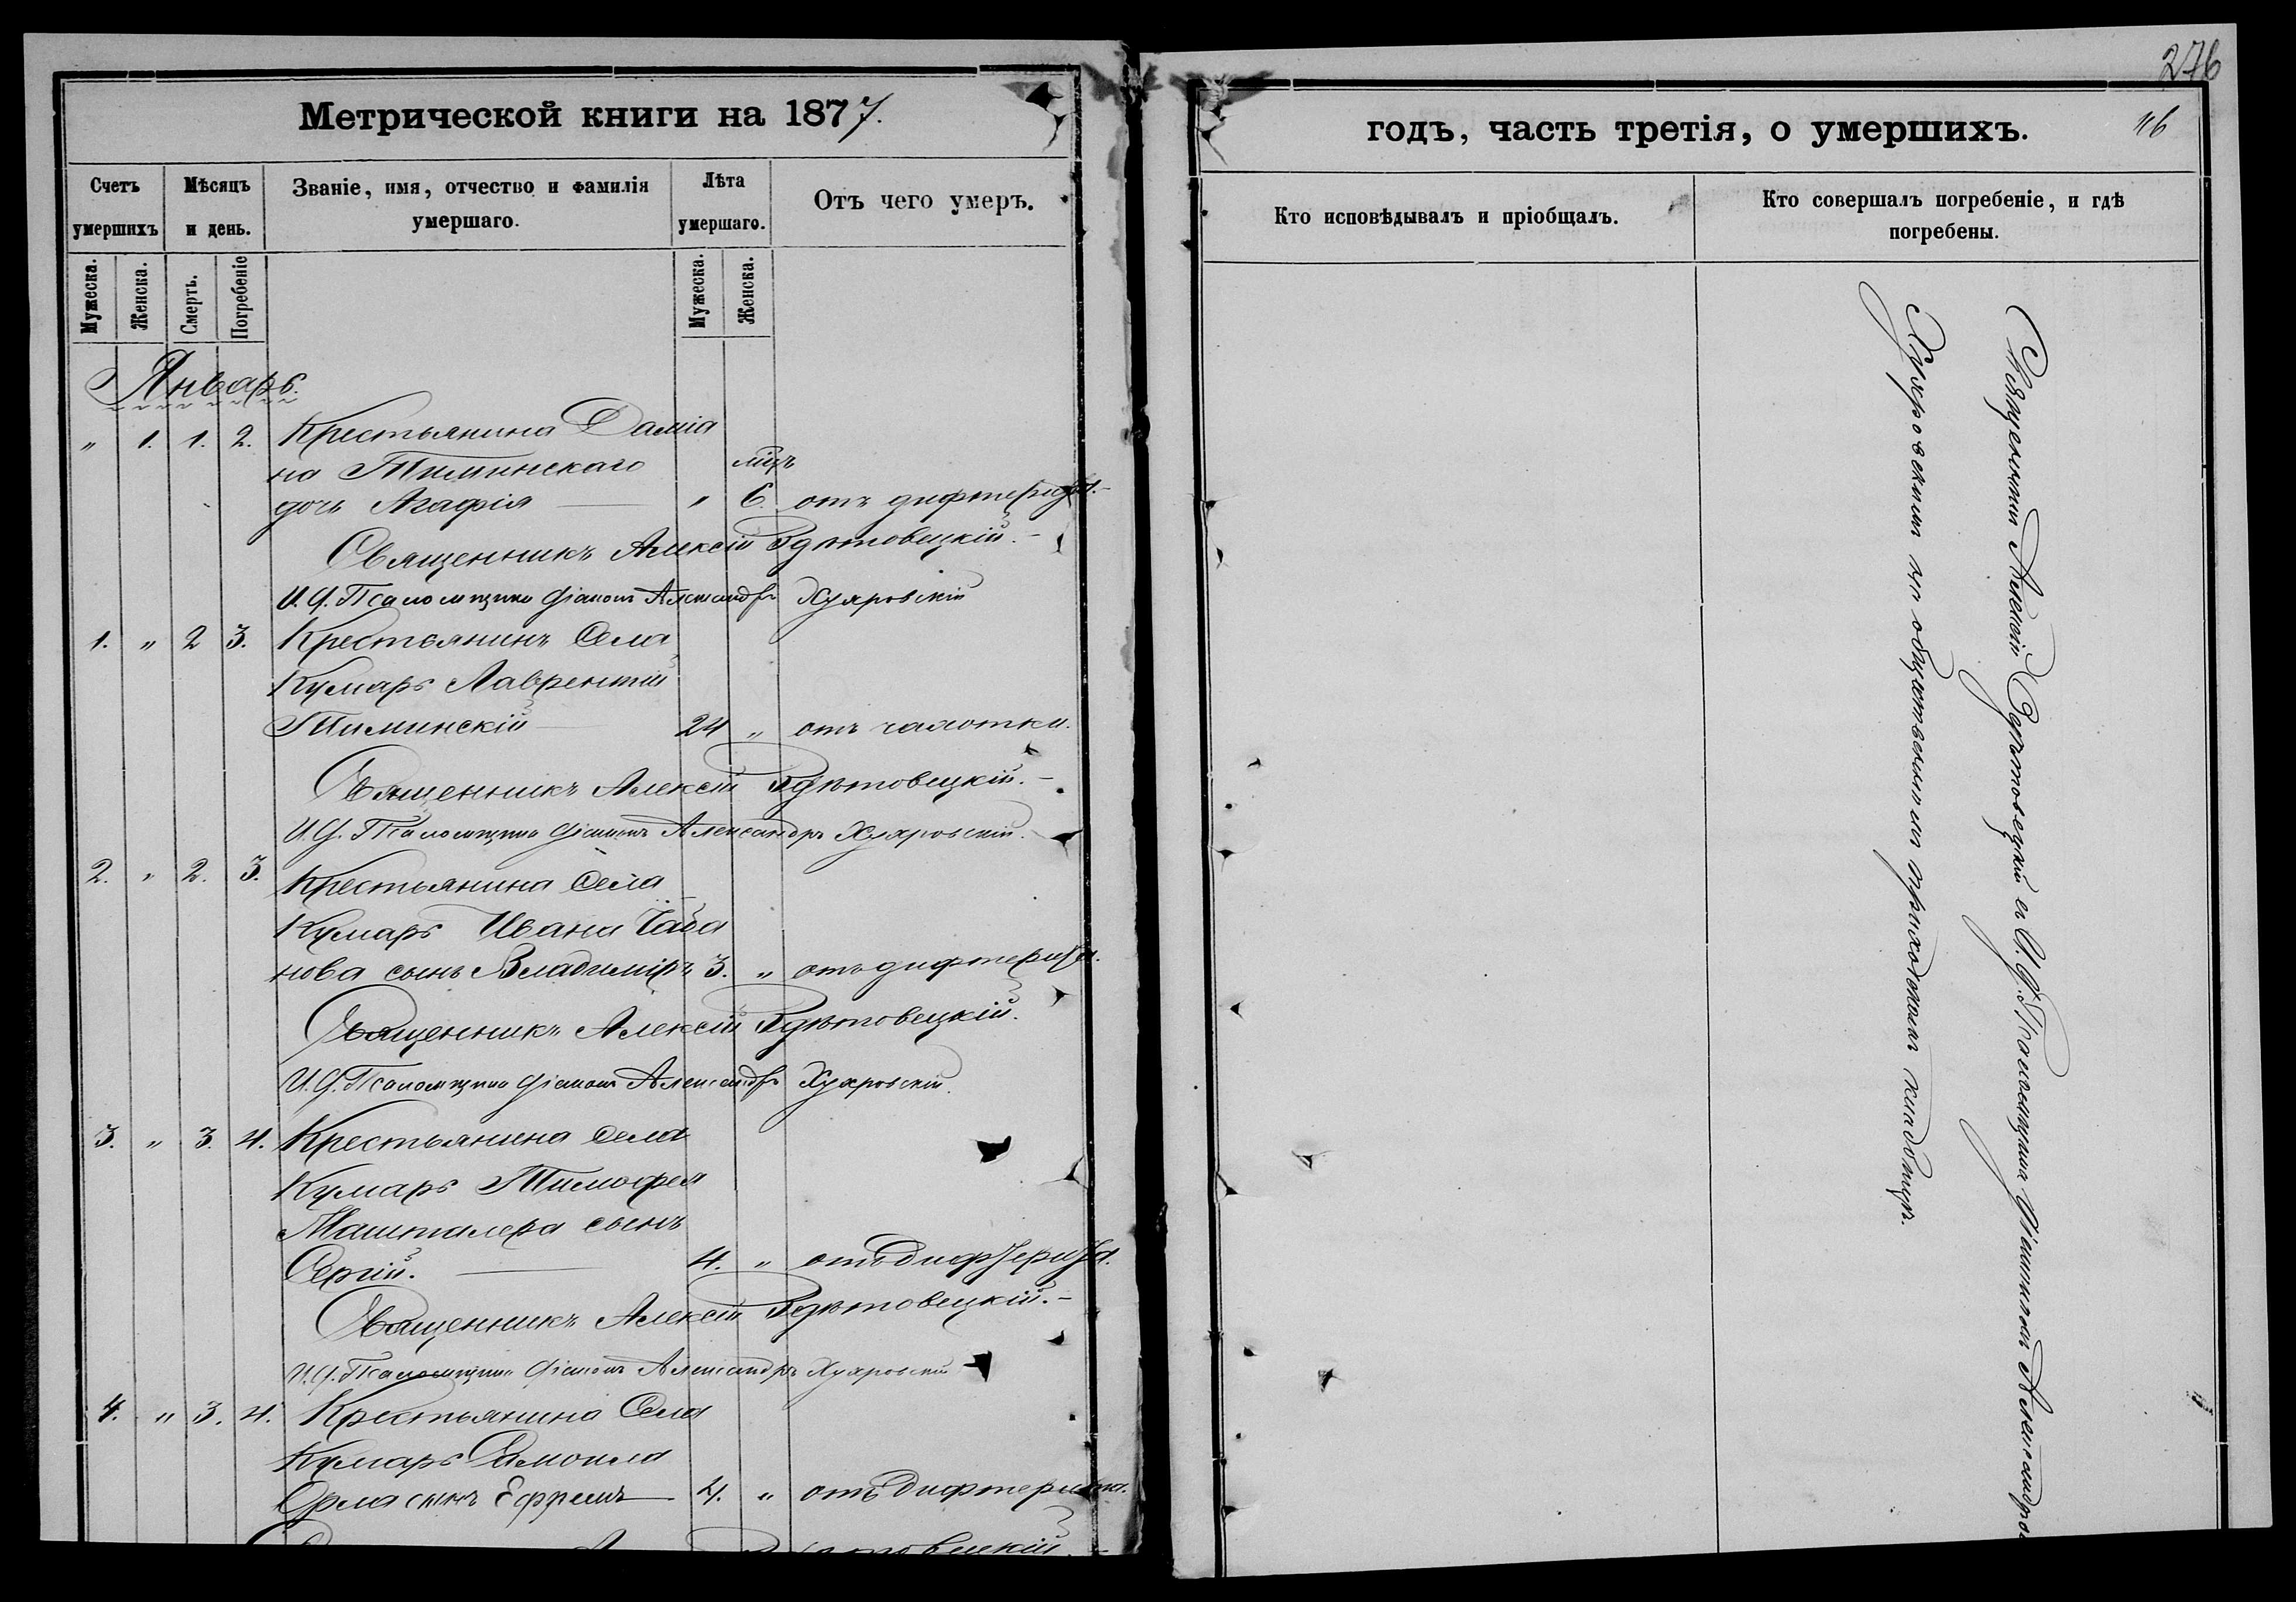 Метрической книги на 1877.
Счетъ умершихъ
Мѣсяцъ и день.
Званіе, имя, отчество и фамилія умершаго.
Лѣта умершаго.
Отъ чего умеръ.
Мужеска.
Женска.
Смерть.
Погребеніе
Мужеска.
Женска.
Январь.
" 1. 1. 2. Крестьянина Даміа
на Тиминскаго
дочь Агафія — " 6. мѣц. отъ дифтерита.
Священникъ Алексій
И. д. Псаломщика Діаконъ Александръ
1. " 2 3. Крестьянинъ Села
Кумаръ Лаврентій
Тиминскій — 24 " отъ чахотки.
Священникъ Алексій
И. д. Псаломщика Діаконъ Александръ
2. " 2. 3. Крестьянина Села
Кумаръ Ивана Чаба
нова сынъ Владиміръ 3. " отъ дифтерита.
Священникъ Алексій
И. д. Псаломщика Діаконъ Александръ
3. " 3. 4. Крестьянина Села
Кумаръ Тимофея
Машталера сынъ
Сергій. — 4. " отъ дифтерита.
Священникъ Алексій
И. д. Псаломщика Діаконъ Александръ
4. " 3. 4. Крестьянина Села
Кумаръ
Орла сынъ Ефремъ — 4. " отъ дифтерита.
276
годъ, часть третія, о умершихъ.
Кто исповѣдывалъ и пріобщалъ.
Кто совершалъ погребеніе, и гдѣ погребены.
Священникъ Алексій съ И. д. Псаломщика Діакономъ
на общественномъ приходскомъ кладбищѣ.